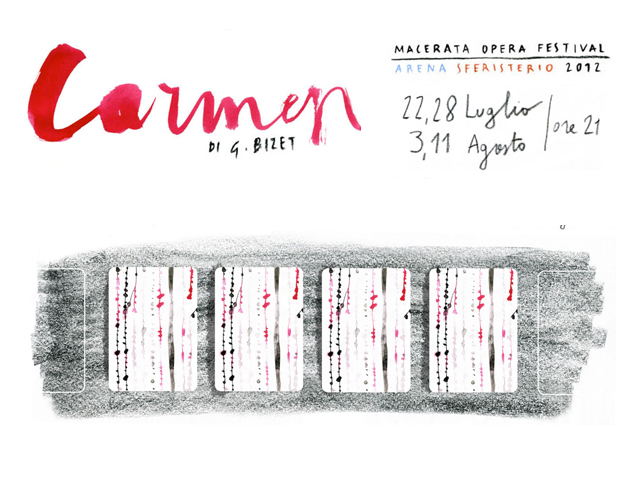 Carmen
DI G. BIZET
MACERATA OPERA FESTIVAL
ARENA SFERISTERIO 2012
22, 28 Luglio
3, 11 Agosto
ore 21